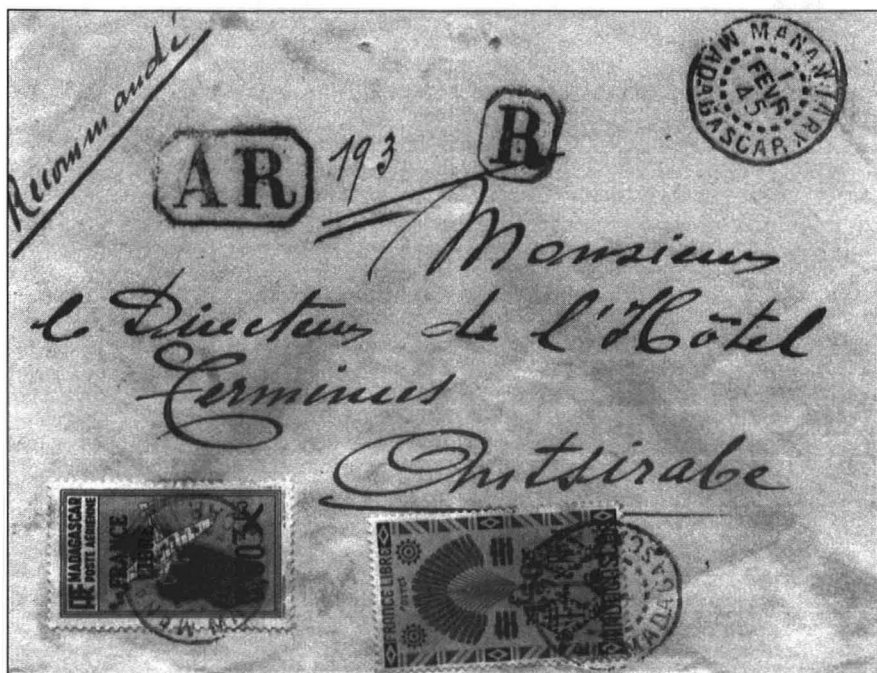 Recommandé
MANANJARY
1
FEVR
45
MADAGASCAR
AR
193
R
Monsieur
le Directeur de l'Hôtel
Terminus
Antsirabe
RF MADAGASCAR
POSTE AÉRIENNE
FRANCE
LIBRE
FRANCE LIBRE
POSTES
MADAGASCAR